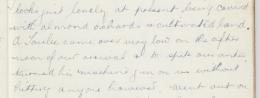 looks just lovely at present being covered
with almond orchards & cultivated land.
A Taube came over very low on the after
noon of our arrival & in spite our anti
turned his machine gun on us without
hitting anyone however. Went out on